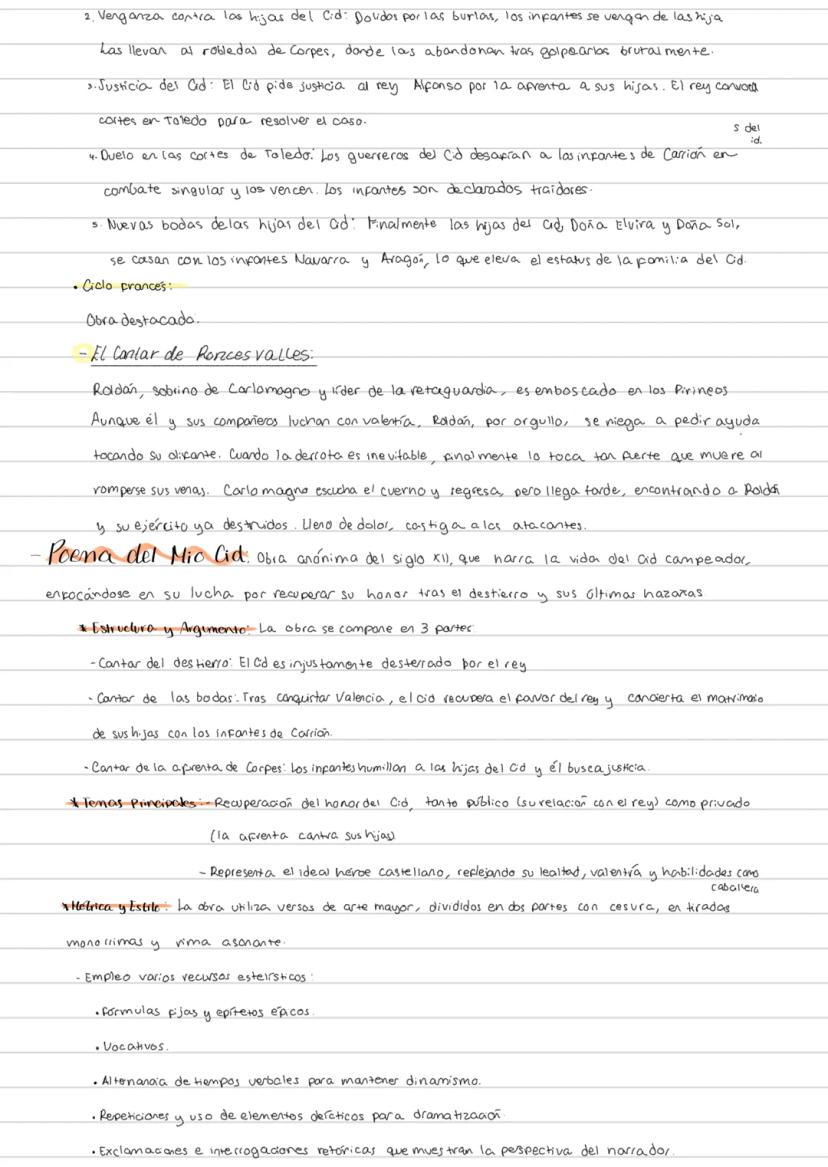 2. Venganza contra las hijas del Cid: Dolidos por las burlas, los infantes se vengan de las hija
Las llevan al robledas de Corpes, donde las abandonan tras golpearlas brutalmente.
3. Justicia del Cid: El Cid pide justicia al rey Alfonso por la afrenta a sus hijas. El rey convoca
cortes en Toledo para resolver el caso.
s del
id.
4. Duelo en las cortes de Toledo: Los guerreros del Cid desafían a los infantes de Carrión en
combate singular y los vencen. Los infantes son declarados traidores.
5. Nuevas bodas de las hijas del Cid: Finalmente las hijas del Cid, Doña Elvira y Doña Sol,
se casan con los infantes Navarra y Aragón, lo que eleva el estatus de la familia del Cid.
• Ciclo francés:
Obra destacada.
- El Cantar de Roncesvalles:
Roldán, sobrino de Carlomagno y líder de la retaguardia, es emboscado en los Pirineos
Aunque él y sus compañeros luchan con valentía, Roldán, por orgullo, se niega a pedir ayuda
tocando su olifante. Cuando la derrota es inevitable, finalmente lo toca tan fuerte que muere al
romperse sus venas. Carlomagno escucha el cuerno y regresa, pero llega tarde, encontrando a Roldán
y su ejército ya destruidos. Lleno de dolor, castiga a los atacantes.
- Poema del Mio Cid. Obra anónima del siglo XII, que narra la vida del Cid campeador,
enfocándose en su lucha por recuperar su honor tras el destierro y sus últimas hazañas
* Estructura y Argumento: La obra se compone en 3 partes
- Cantar del destierro: El Cid es injustamente desterrado por el rey
- Cantar de las bodas: Tras conquistar Valencia, el cid recupera el favor del rey y concierta el matrimonio
de sus hijas con los infantes de Carrión.
- Cantar de la afrenta de Corpes: Los infantes humillan a las hijas del Cid y él busca justicia.
* Temas Principales: - Recuperación del honor del Cid, tanto público (su relación con el rey) como privado
(la afrenta contra sus hijas)
- Representa el ideal héroe castellano, reflejando su lealtad, valentía y habilidades como
caballero
* Métrica y Estilo: La obra utiliza versos de arte mayor, divididos en dos partes con cesura, en tiradas
monorrimas y rima asonante.
- Empleo varios recursos estelísticos:
• Fórmulas fijas y epítetos épicos.
• Vocativos.
• Alternancia de tiempos verbales para mantener dinamismo.
• Repeticiones y uso de elementos deícticos para dramatización
• Exclamaciones e interrogaciones retóricas que muestran la perspectiva del narrador.